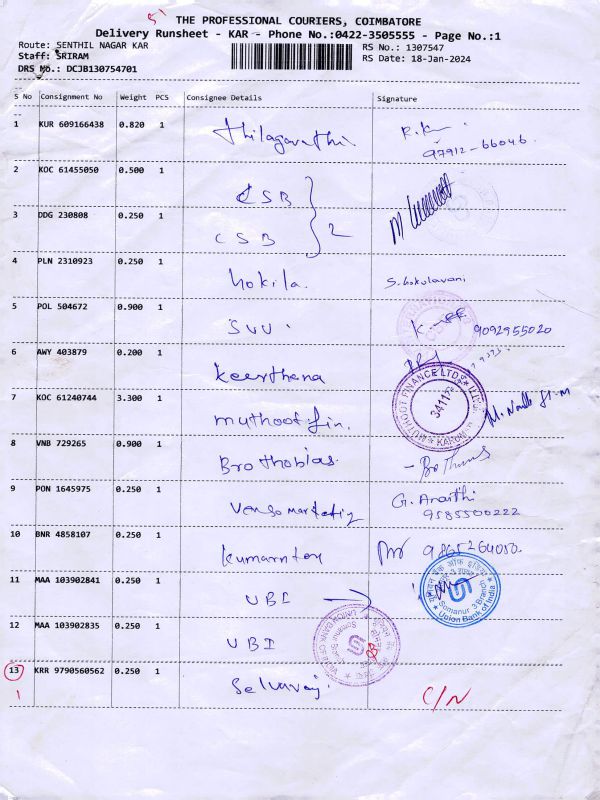 THE PROFESSIONAL COURIERS, COIMBATORE
Delivery Runsheet - KAR - Phone No.:0422-3505555 - Page No.:1
Route: SENTHIL NAGAR KAR
RS No.: 1307547
Staff: SRIRAM
RS Date: 18-Jan-2024
DRS No.: DCJB130754701
S No Consignment No Weight PCS Consignee Details Signature
1 KUR 609166438 0.820 1 thilagavathi
97912-66046
2 KOC 61455050 0.500 1 CSB
3 DDG 230808 0.250 1 CSB 2
4 PLN 2310923 0.250 1 hokila. S. Gokulavani
5 POL 504672 0.900 1 SVV. 9092955020
6 AWY 403879 0.200 1 keerthena
7 KOC 61240744 3.300 1 muthoot fin.
MUTHOOT FINANCE LTD
3411
KARUR
8 VNB 729265 0.900 1 Bro thobias
9 PON 1645975 0.250 1 G. Ananthi
9585500222
10 BNR 4858107 0.250 1
11 MAA 103902841 0.250 1 UBI
Somanur Branch
Union Bank of India
12 MAA 103902835 0.250 1 UBI
13 KRR 9790560562 0.250 1 Selvaraj. C/N
1